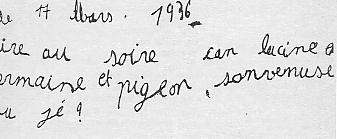 de 17 Mars. 1936
ire au soire can lucine a
ermaine et pigeon, sonvenuse
u jé?